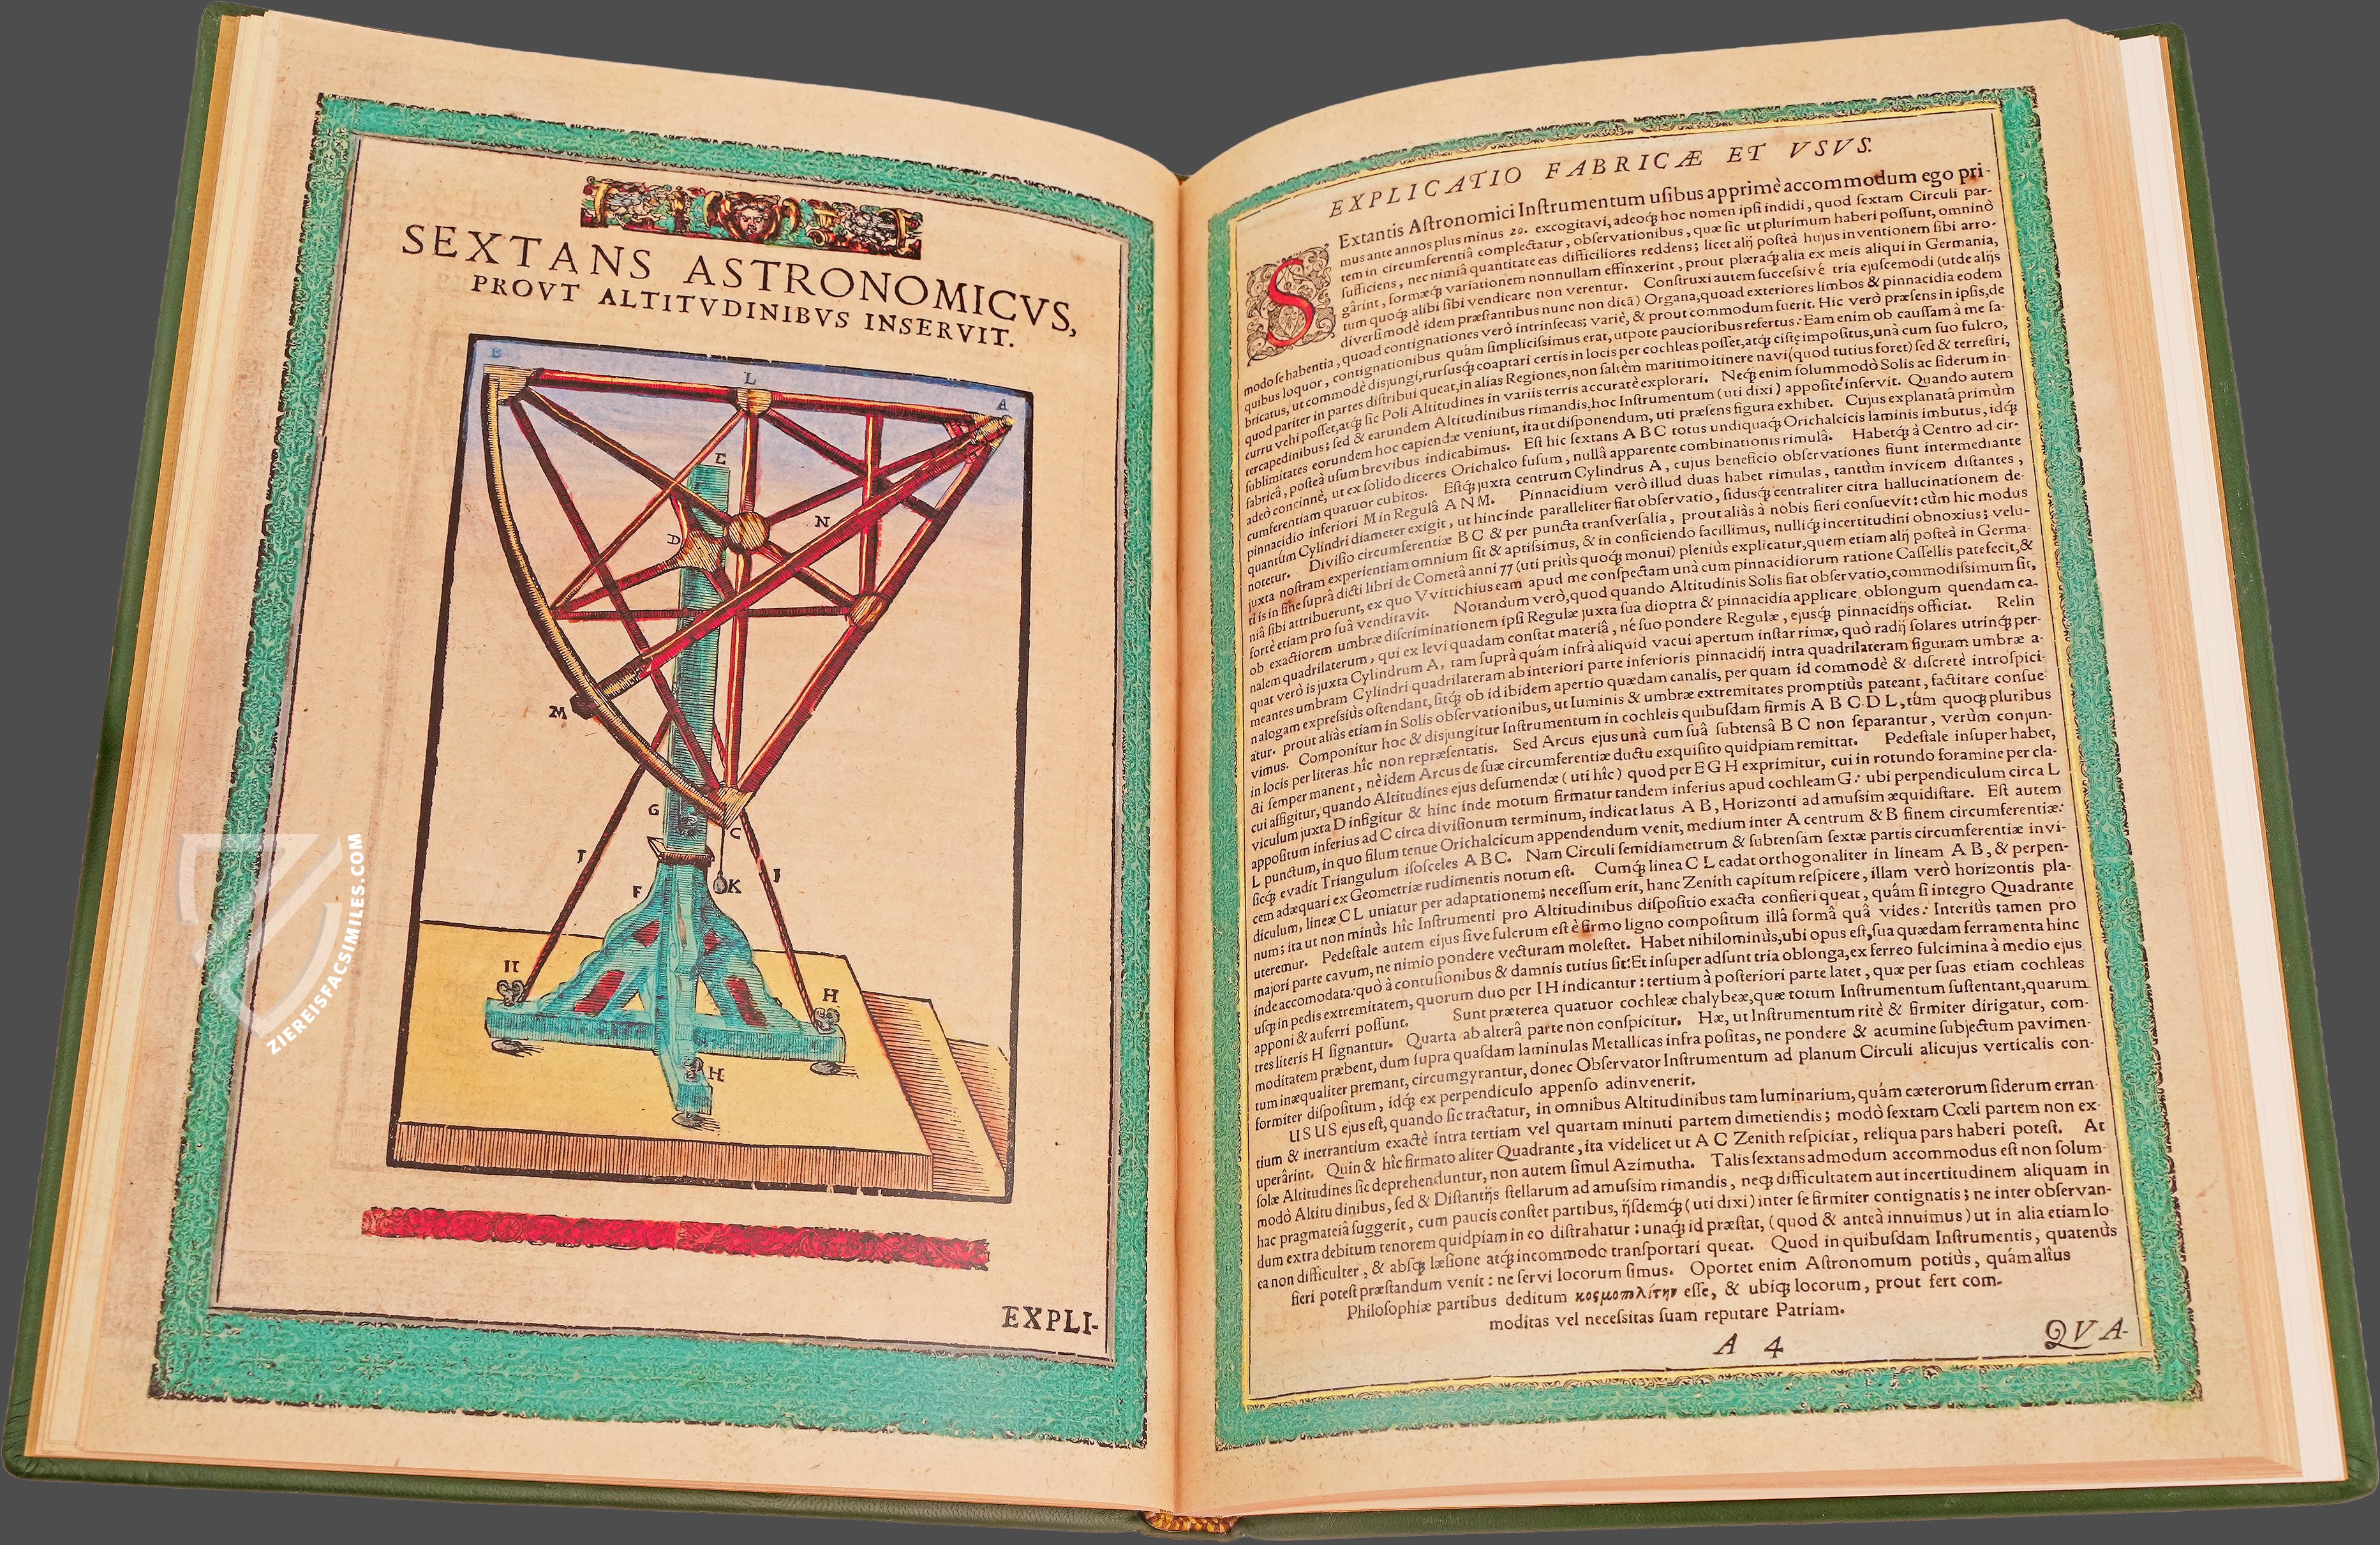 SEXTANS ASTRONOMICVS,
PROVT ALTITVDINIBVS INSERVIT.
B
L
A
E
N
D
M
G
C
I
I
K
F
H
H
H
EXPLI-
ZIEREISFACSIMILES.COM
EXPLICATIO FABRICÆ ET VSVS.
SExtantis Astronomici Instrumentum usibus apprimè accommodum ego pri-
mus ante annos plus minus 20. excogitavi, adeoq́; hoc nomen ipsi indidi, quod sextam Circuli par-
tem in circumferentiâ complectatur, observationibus, quæ sic ut plurimum haberi possunt, omninò
sufficiens, nec nimiâ quantitate eas difficiliores reddens; licet alij posteà hujus inventionem sibi arro-
gârint, formæq́; variationem nonnullam effinxerint, prout plæraq́; alia ex meis aliqui in Germania,
tum quoq́; alibi sibi vendicare non verentur. Construxi autem successivè tria ejuscemodi (ut de alijs
diversimodè idem præstantibus nunc non dicā) Organa, quoad exteriores limbos & pinnacidia eodem
modo se habentia, quoad contignationes verò intrinsecas; variè, & prout commodum fuerit. Hic verò præsens in ipsis, de
quibus loquor, contignationibus quàm simplicissimus erat, utpote paucioribus refertus: Eam enim ob caussam à me fa-
bricatus, ut commodè disjungi, rursusq́; coaptari certis in locis per cochleas posset, atq́; cistę impositus, unà cum suo fulcro,
quod pariter in partes distribui queat, in alias Regiones, non saltèm maritimo itinere navi (quod tutius foret) sed & terrestri,
curru vehi posset, atq́; sic Poli Altitudines in variis terris accuratè explorari. Neq́; enim solummodò Solis ac siderum in-
tercapedinibus; sed & earundem Altitudinibus rimandis, hoc Instrumentum (uti dixi) appositè inservit. Quando autem
sublimitates eorundem hoc capiendæ veniunt, ita ut disponendum, uti præsens figura exhibet. Cujus explanatâ primùm
fabricâ, posteà usum brevibus indicabimus. Est hic sextans A B C totus undiquaq́; Orichalcicis laminis imbutus, idq́;
adeò concinnè, ut ex solido diceres Orichalco fusum, nullâ apparente combinationis rimulâ. Habetq́; à Centro ad cir-
cumferentiam quatuor cubitos. Estq́; juxta centrum Cylindrus A, cujus beneficio observationes fiunt intermediante
pinnacidio inferiori M in Regulâ A N M. Pinnacidium verò illud duas habet rimulas, tantùm invicem distantes,
quantùm Cylindri diameter exigit, ut hinc inde paralleliter fiat observatio, sidusq́; centraliter citra hallucinationem de-
notetur. Divisio circumferentiæ B C & per puncta transversalia, prout aliàs à nobis fieri consuevit: cùm hic modus
juxta nostram experientiam omnium sit & aptissimus, & in conficiendo facillimus, nulliq́; incertitudini obnoxius; velu-
ti is in fine suprà dicti libri de Cometâ anni 77 (uti priùs quoq́; monui) pleniùs explicatur, quem etiam alij posteà in Germa-
niâ sibi attribuerunt, ex quo VVittichius eam apud me conspectam unà cum pinnacidiorum ratione Cassellis patefecit, &
fortè etiam pro suâ venditavit. Notandum verò, quod quando Altitudinis Solis fiat observatio, commodissimum sit,
ob exactiorem umbræ discriminationem ipsi Regulæ juxta sua dioptra & pinnacidia applicare oblongum quendam ca-
nalem quadrilaterum, qui ex levi quadam constat materiâ, nè suo pondere Regulæ, ejusq́; pinnacidijs officiat. Relin
quat verò is juxta Cylindrum A, tam suprà quàm infrà aliquid vacui apertum instar rimæ, quò radij solares utrinq́; per-
meantes umbram Cylindri quadrilateram ab interiori parte inferioris pinnacidij intra quadrilateram figuram umbræ a-
nalogam expressiùs ostendant, sitq́; ob id ibidem apertio quædam canalis, per quam id commodè & discretè introspici-
atur. prout aliàs etiam in Solis observationibus, ut luminis & umbræ extremitates promptiùs pateant, factitare consue-
vimus. Componitur hoc & disjungitur Instrumentum in cochleis quibusdam firmis A B C D L, tùm quoq́; pluribus
in locis per literas hîc non repræsentatis. Sed Arcus ejus unà cum suâ subtensâ B C non separantur, verùm conjun-
cti semper manent, nè idem Arcus de suæ circumferentiæ ductu exquisito quidpiam remittat. Pedestale insuper habet,
cui affigitur, quando Altitudines ejus desumendæ (uti hîc) quod per E G H exprimitur, cui in rotundo foramine per cla-
viculum juxta D infigitur & hinc inde motum firmatur tandem inferius apud cochleam G: ubi perpendiculum circa L
appositum inferius ad C circa divisionum terminum, indicat latus A B, Horizonti ad amussim æquidistare. Est autem
L punctum, in quo filum tenue Orichalcicum appendendum venit, medium inter A centrum & B finem circumferentiæ:
sicq́; evadit Triangulum isosceles A B C. Nam Circuli semidiametrum & subtensam sextæ partis circumferentiæ invi-
cem adæquari ex Geometriæ rudimentis notum est. Cumq́; linea C L cadat orthogonaliter in lineam A B, & perpen-
diculum, lineæ C L uniatur per adaptationem; necessum erit, hanc Zenith capitum respicere, illam verò horizontis pla-
num; ita ut non minùs hîc Instrumenti pro Altitudinibus dispositio exacta confieri queat, quàm si integro Quadrante
uteremur. Pedestale autem eijus sive fulcrum est è firmo ligno compositum illâ formâ quâ vides: Interiùs tamen pro
majori parte cavum, ne nimio pondere vecturam molestet. Habet nihilominùs, ubi opus est, sua quædam ferramenta hinc
inde accomodata: quò à contusionibus & damnis tutius sit: Et insuper adsunt tria oblonga, ex ferreo fulcimina à medio ejus
usq́; in pedis extremitatem, quorum duo per I H indicantur: tertium à posteriori parte latet, quæ per suas etiam cochleas
apponi & auferri possunt. Sunt præterea quatuor cochleæ chalybeæ, quæ totum Instrumentum sustentant, quarum
tres literis H signantur. Quarta ab alterâ parte non conspicitur. Hæ, ut Instrumentum ritè & firmiter dirigatur, com-
moditatem præbent, dum supra quasdam laminulas Metallicas infra positas, ne pondere & acumine subjectum pavimen-
tum inæqualiter premant, circumgyrantur, donec Observator Instrumentum ad planum Circuli alicujus verticalis con-
formiter dispositum, idq́; ex perpendiculo appenso adinvenerit.
USUS ejus est, quando sic tractatur, in omnibus Altitudinibus tam luminarium, quàm cæterorum siderum erran-
tium & inerrantium exactè intra tertiam vel quartam minuti partem dimetiendis; modò sextam Cœli partem non ex-
uperârint. Quin & hîc firmato aliter Quadrante, ita videlicet ut A C Zenith respiciat, reliqua pars haberi potest. At
solæ Altitudines sic deprehenduntur, non autem simul Azimutha. Talis sextans admodum accommodus est non solum-
modò Altitudinibus, sed & Distantijs stellarum ad amussim rimandis, neq́; difficultatem aut incertitudinem aliquam in
hac pragmateiâ suggerit, cum paucis constet partibus, ijsdemq́; (uti dixi) inter se firmiter contignatis; ne inter observan-
dum extra debitum tenorem quidpiam in eo distrahatur: unaq́; id præstat, (quod & anteà innuimus) ut in alia etiam lo-
ca non difficulter, & absq́; læsione atq́; incommodo transportari queat. Quod in quibusdam Instrumentis, quatenùs
fieri potest præstandum venit: ne servi locorum simus. Oportet enim Astronomum potiùs, quàm alîus
Philosophiæ partibus deditum κοσμοπολίτην esse, & ubiq́; locorum, prout fert com-
moditas vel necessitas suam reputare Patriam.
A 4
QVA-